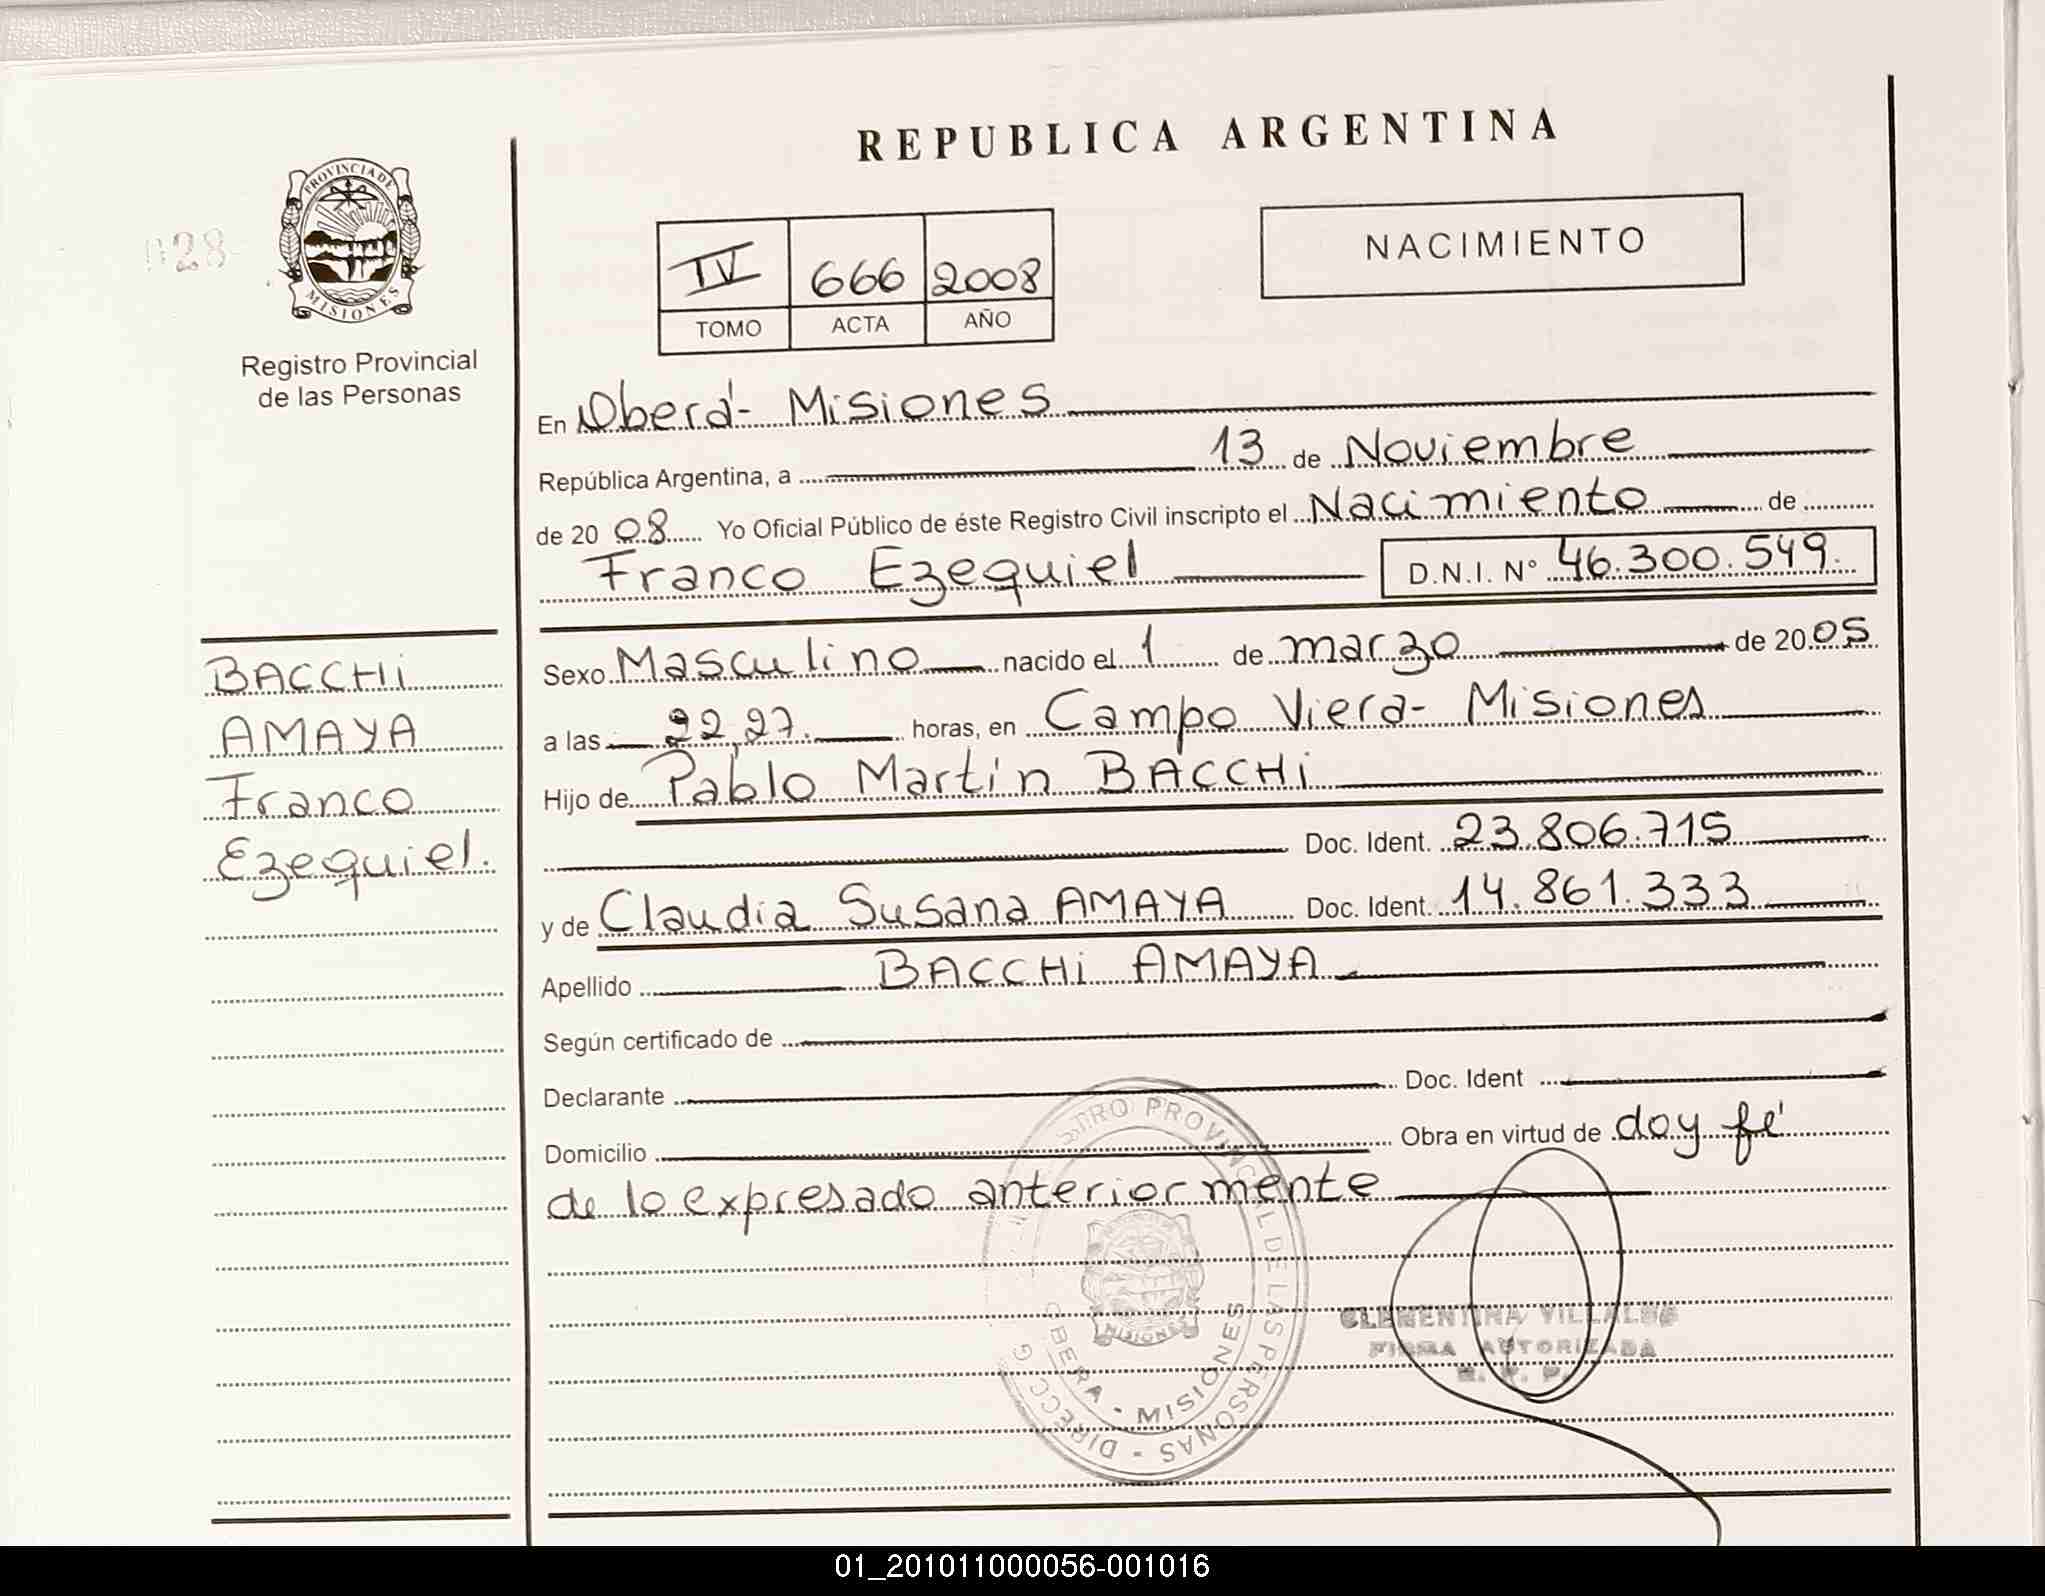 REPUBLICA ARGENTINA
PROVINCIA DE
MISIONES
028
Registro Provincial
de las Personas
IV 666 2008
TOMO ACTA AÑO
NACIMIENTO
En Oberá - Misiones
República Argentina, a 13 de Noviembre
de 20 08 Yo Oficial Público de éste Registro Civil inscripto el Nacimiento de
Franco Ezequiel D.N.I. N° 46.300.549.
BACCHi
AMAYA
Franco
Ezequiel.
Sexo Masculino nacido el 1 de marzo de 20 05
a las 22,27. horas, en Campo Viera - Misiones
Hijo de Pablo Martín BACCHi
Doc. Ident. 23.806.715
y de Claudia Susana AMAYA Doc. Ident. 14.861.333
Apellido BACCHi AMAYA
Según certificado de
Declarante Doc. Ident
Domicilio Obra en virtud de doy fé
de lo expresado anteriormente
PROVINCIAL DE LAS PERSONAS
MISIONES
OBERA - MISIONES
CLEMENTINA VILLALBA
FIRMA AUTORIZADA
R. P. P.
01_201011000056-001016